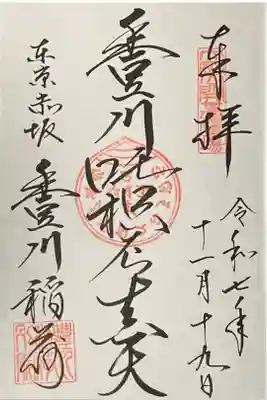 奉拝
令和七年
十一月十九日
豊川吒枳尼真天
東京赤坂
豊川稲荷